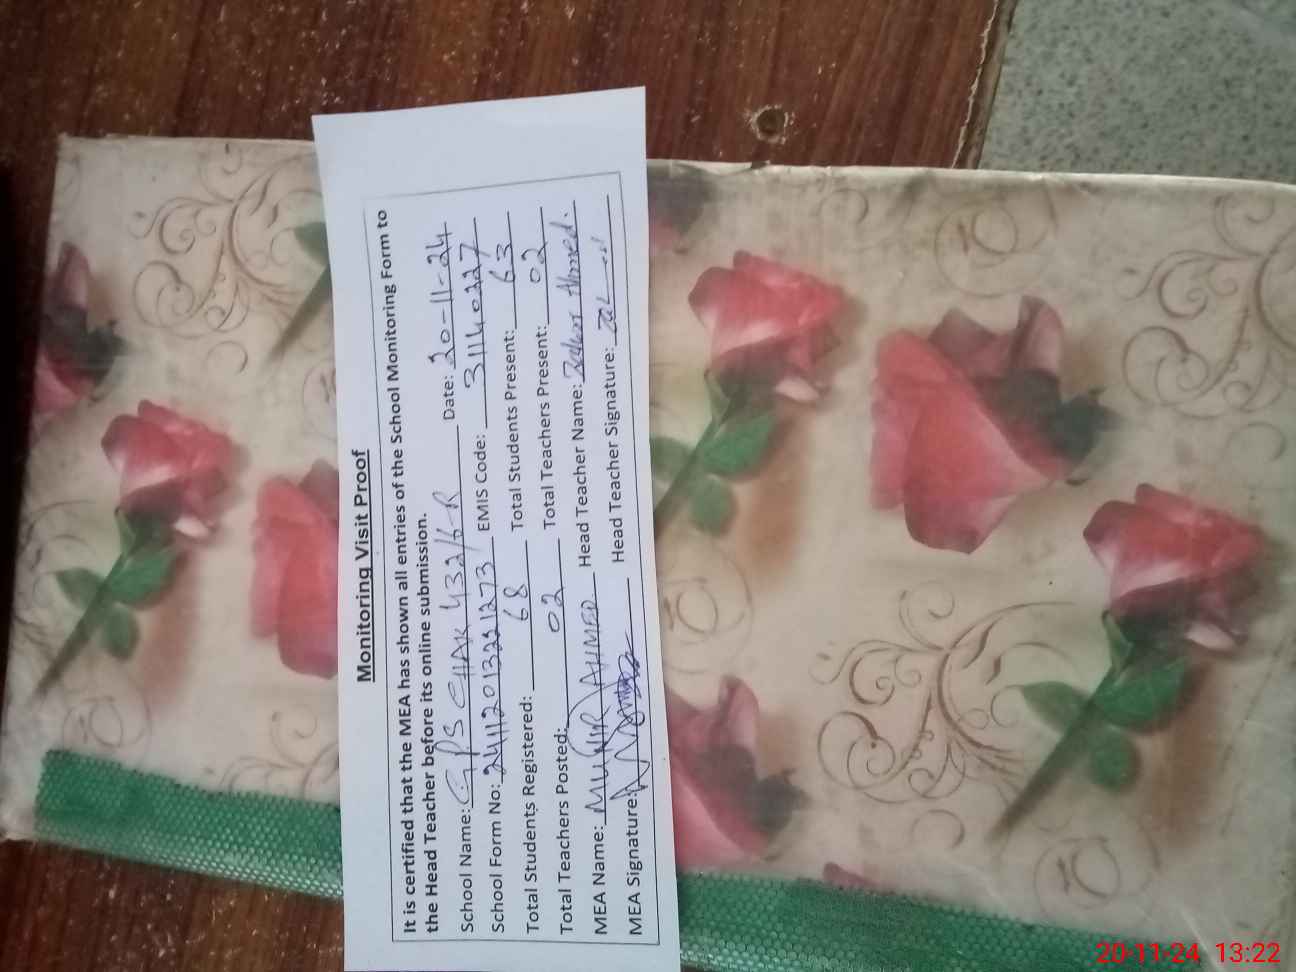 Monitoring Visit Proof
It is certified that the MEA has shown all entries of the School Monitoring Form to
the Head Teacher before its online submission.
School Name: GPS CHAK 432/6-R Date: 20-11-24
School Form No: EMIS Code: 31140227
Total Students Registered: 68 Total Students Present: 63
Total Teachers Posted: 02 Total Teachers Present: 02
MEA Name: MUNIR AHMED Head Teacher Name: Ahmed.
MEA Signature: Head Teacher Signature:
20-11-24 13:22